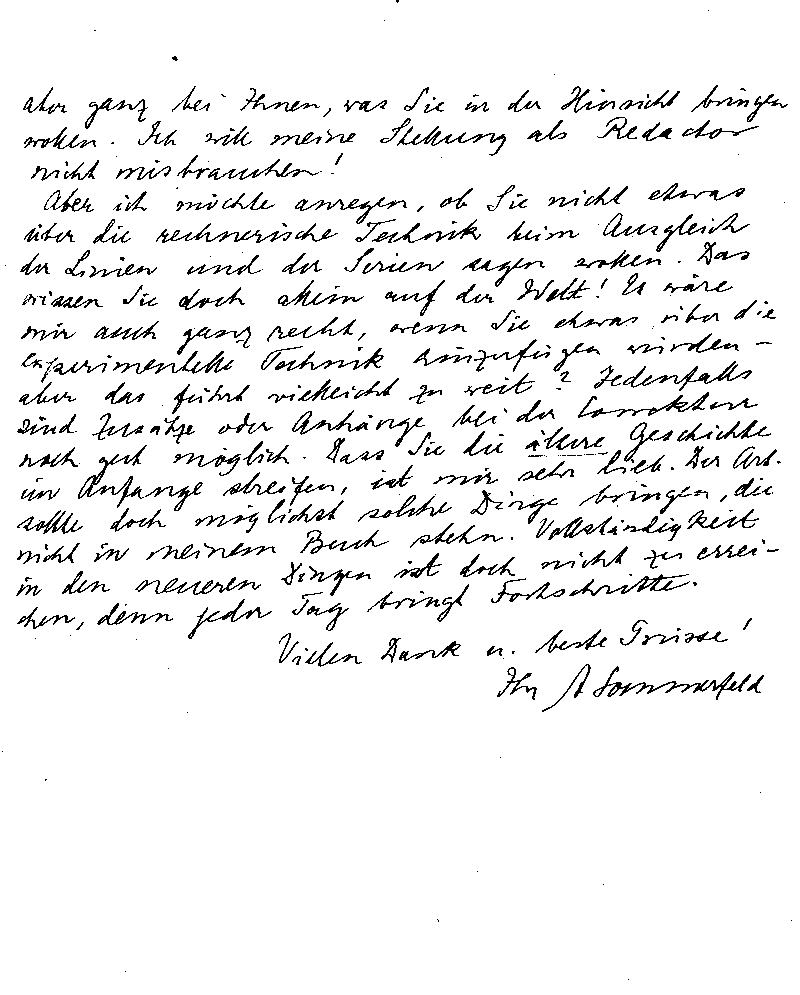 aber ganz bei Ihnen, was Sie in der Hinsicht bringen
wollen. Ich will meine Stellung als Redactor
nicht misbrauchen!
Aber ich möchte anregen, ob Sie nicht etwas
über die rechnerische Technik beim Ausgleich
der Linien und der Serien sagen wollen. Das
wissen Sie doch allein auf der Welt! Es wäre
mir auch ganz recht, wenn Sie etwas über die
experimentelle Technik hinzufügen würden –
aber das führt vielleicht zu weit? Jedenfalls
sind Zusätze oder Anhänge bei der Correktur
noch gut möglich. Dass Sie die ältere Geschichte
im Anfange streifen, ist mir sehr lieb. Der Art.
sollte doch möglichst solche Dinge bringen, die
nicht in meinem Buch stehn. Vollständigkeit
in den neueren Dingen ist doch nicht zu errei-
chen, denn jeder Tag bringt Fortschritte.
Vielen Dank u. beste Grüsse!
Ihr A Sommerfeld